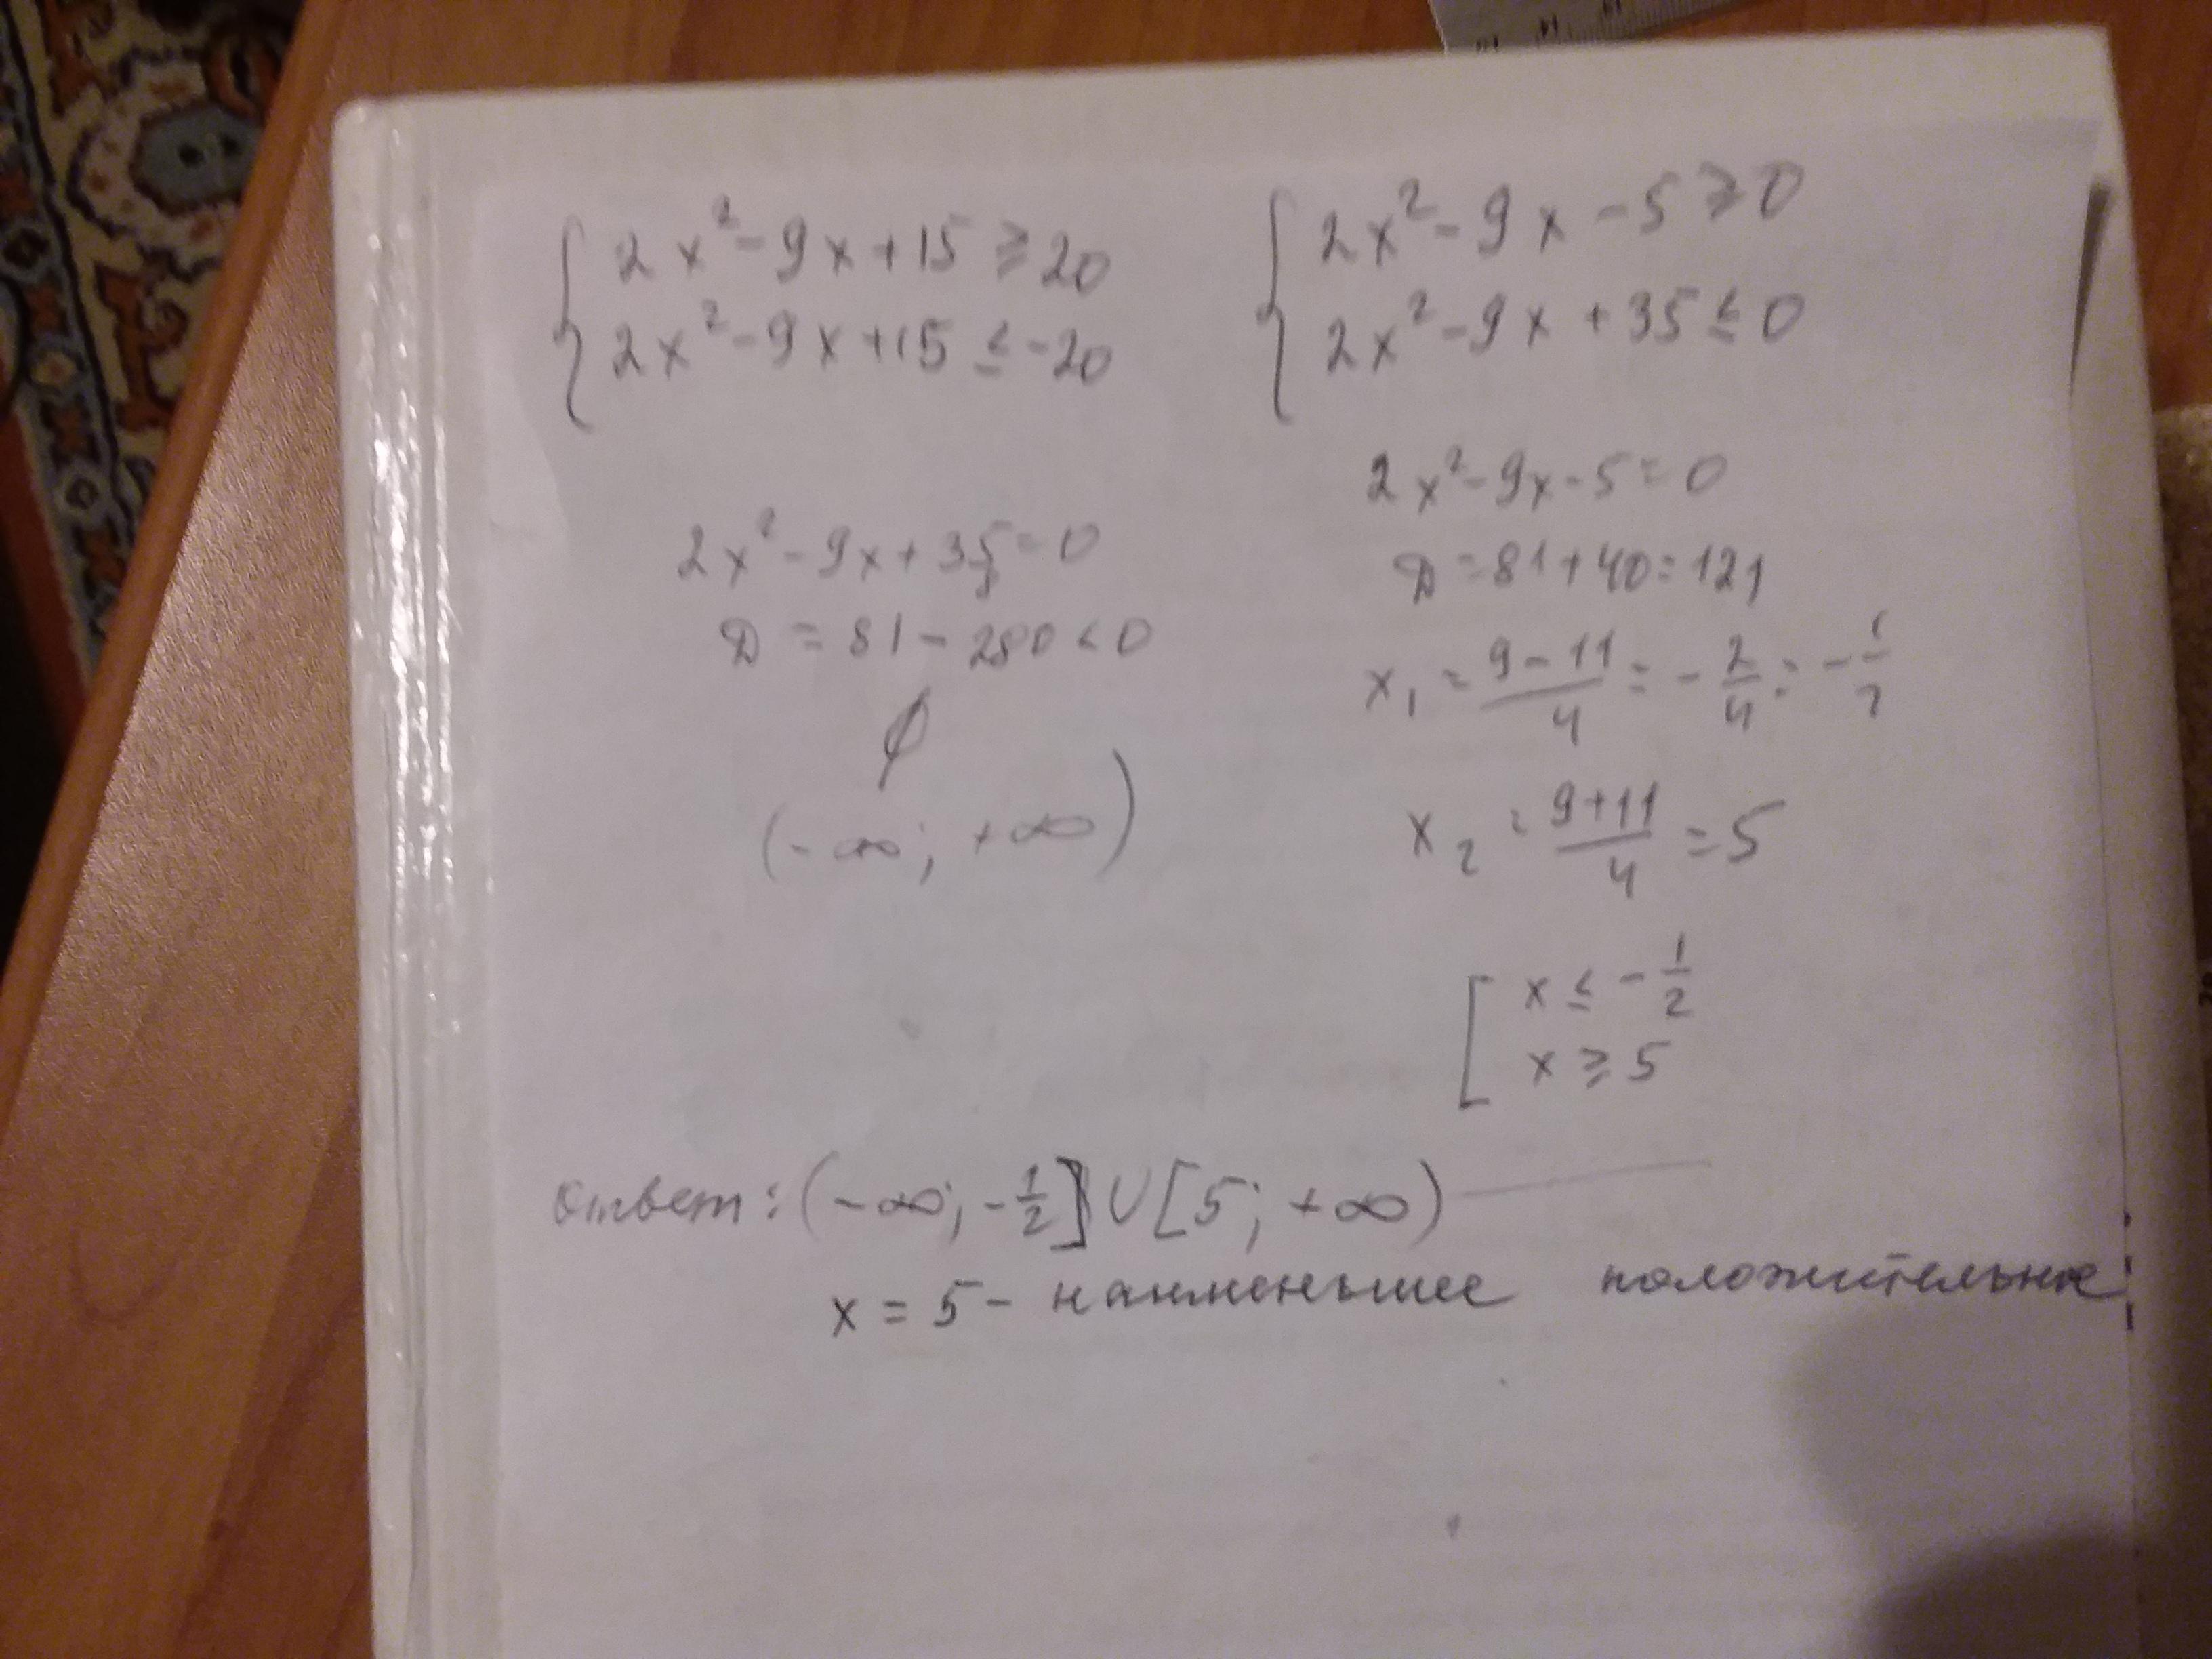 { 2x² - 9x + 15 ≥ 20
2x² - 9x + 15 ≤ -20
{ 2x² - 9x - 5 ≥ 0
2x² - 9x + 35 ≤ 0
2x² - 9x + 35 = 0
D = 81 - 280 < 0
∅
(-∞; +∞)
2x² - 9x - 5 = 0
D = 81 + 40 = 121
x₁ = (9 - 11)/4 = -2/4 = -1/2
x₂ = (9 + 11)/4 = 5
[ x ≤ -1/2
x ≥ 5
Ответ: (-∞; -1/2] ∪ [5; +∞)
x = 5 - наименьшее положительное